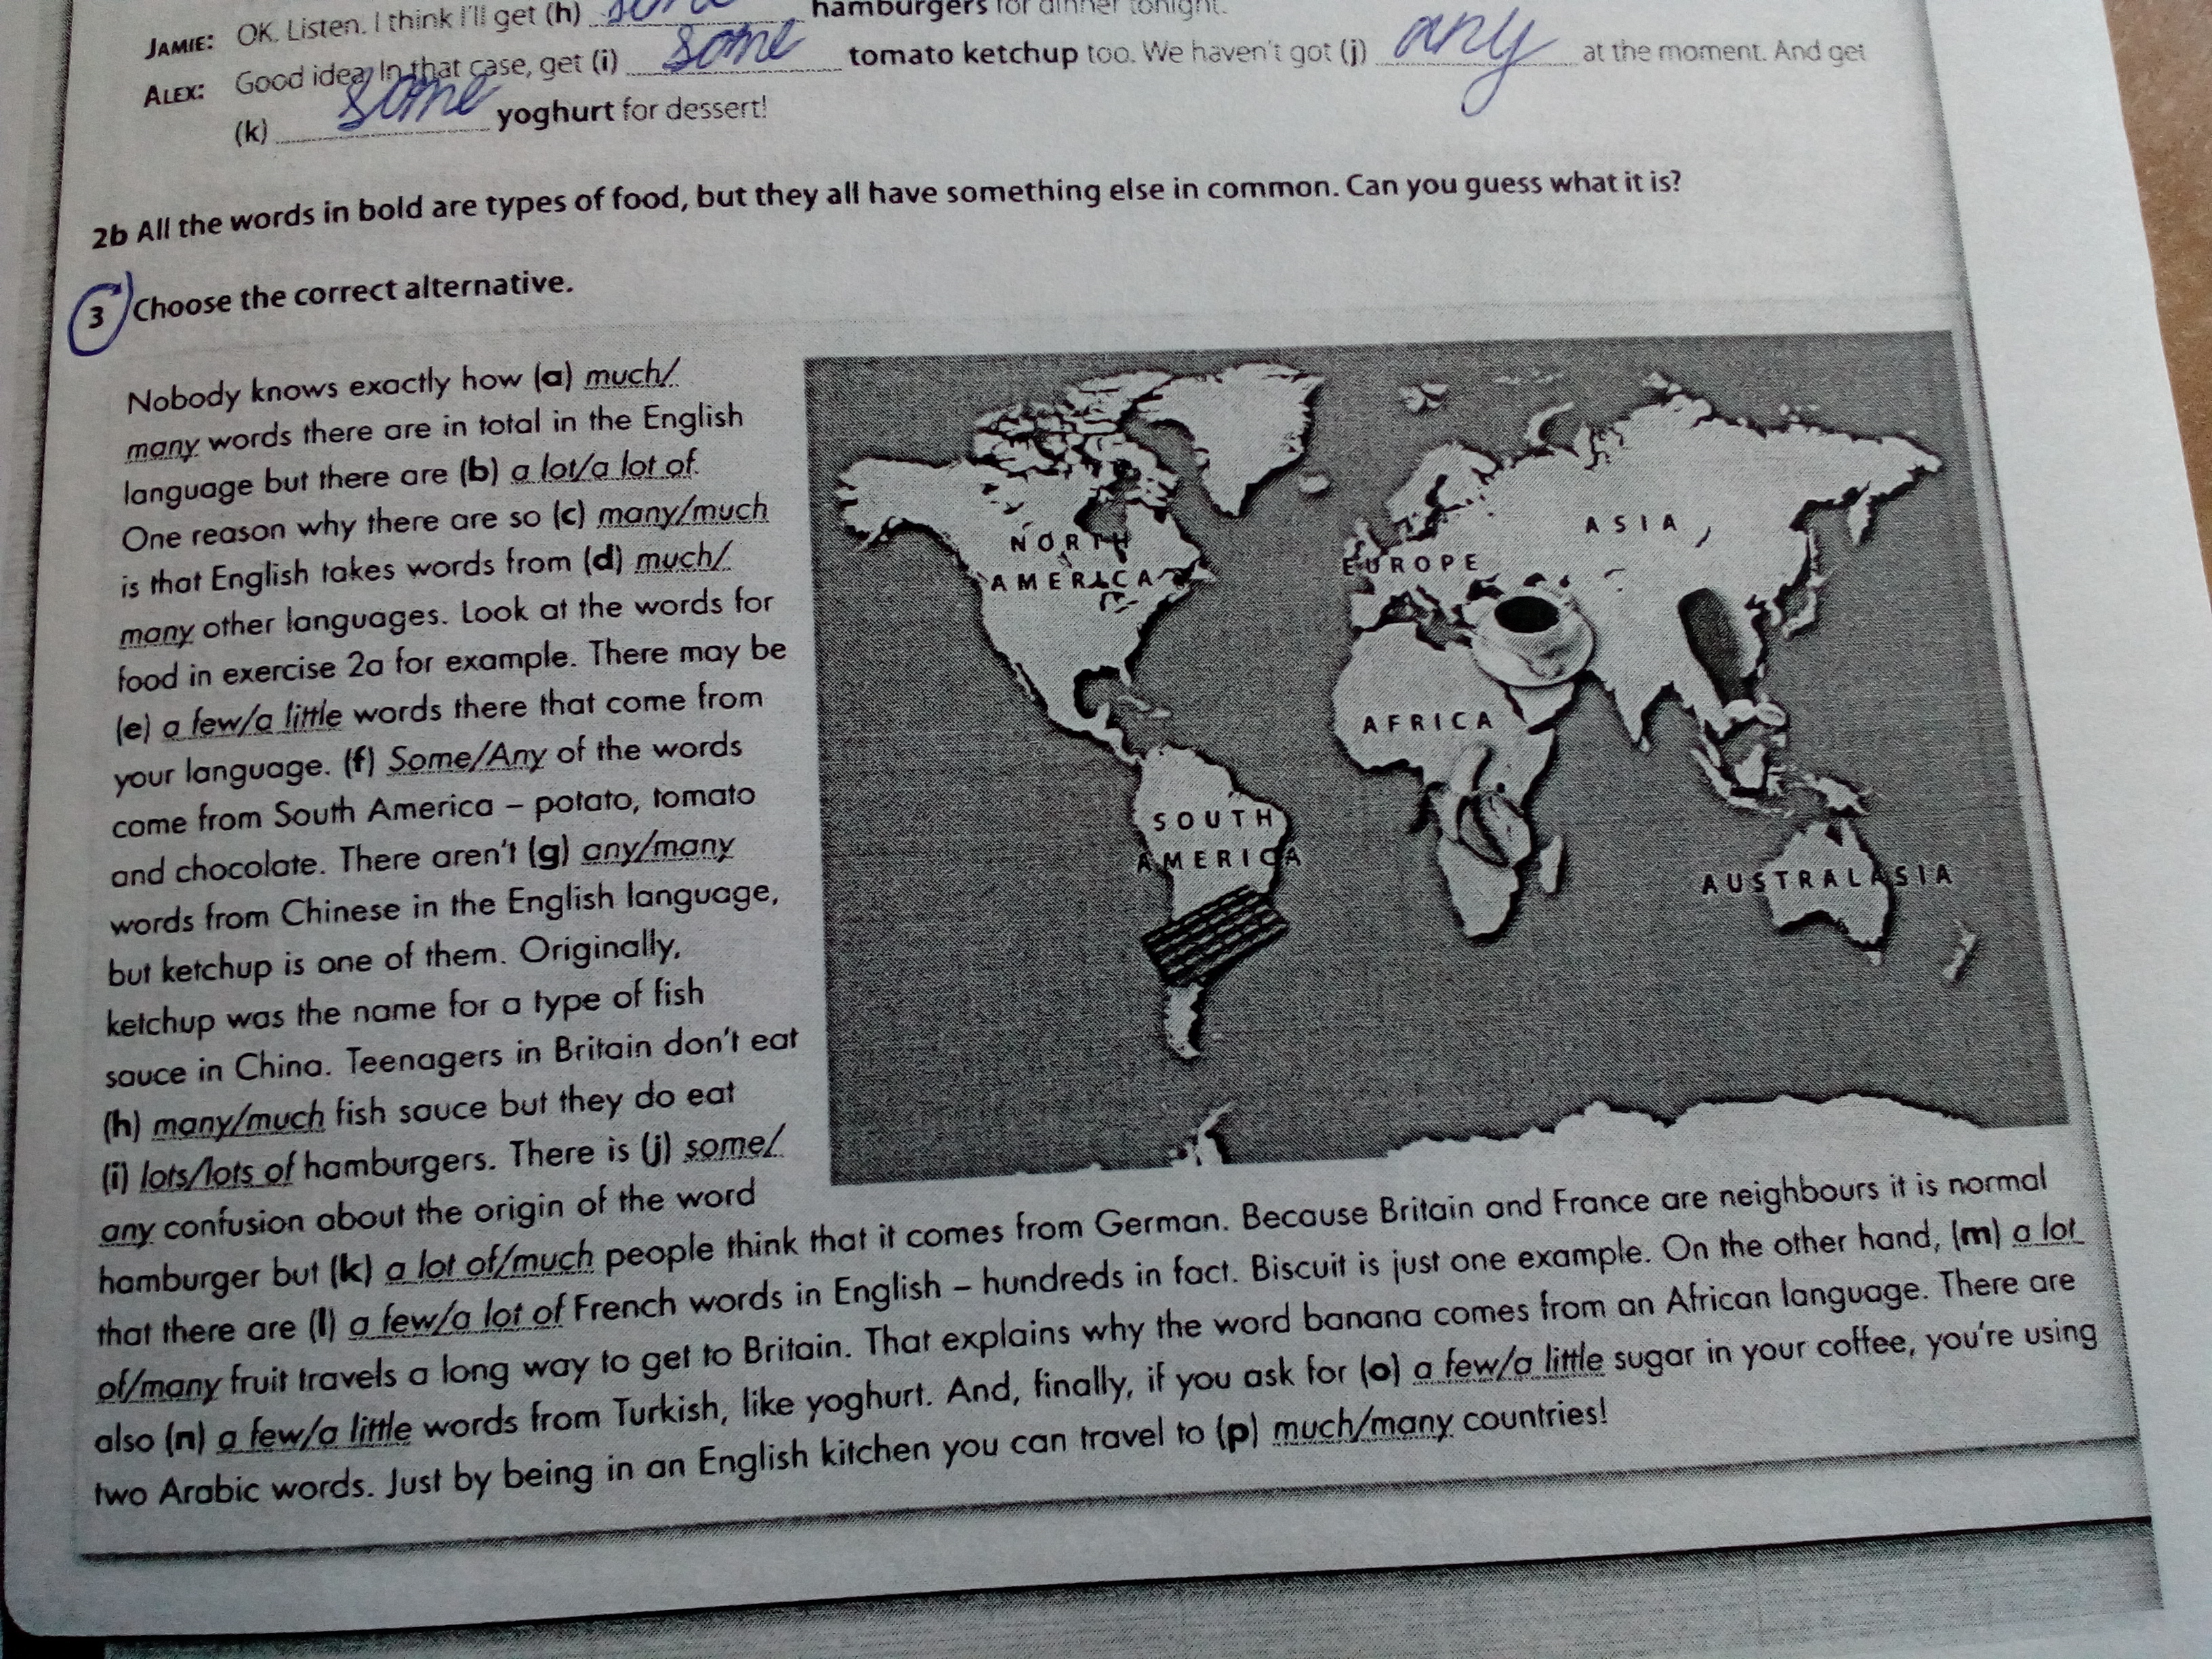 JAMIE: OK. Listen. I think I'll get (h) some hamburgers for dinner tonight.
ALEX: Good idea. In that case, get (i) some tomato ketchup too. We haven't got (j) any at the moment. And get
(k) some yoghurt for dessert!
2b All the words in bold are types of food, but they all have something else in common. Can you guess what it is?
3 Choose the correct alternative.
Nobody knows exactly how (a) much/
many words there are in total in the English
language but there are (b) a lot/a lot of.
One reason why there are so (c) many/much
is that English takes words from (d) much/
many other languages. Look at the words for
food in exercise 2a for example. There may be
(e) a few/a little words there that come from
your language. (f) Some/Any of the words
come from South America – potato, tomato
and chocolate. There aren't (g) any/many
words from Chinese in the English language,
but ketchup is one of them. Originally,
ketchup was the name for a type of fish
sauce in China. Teenagers in Britain don't eat
(h) many/much fish sauce but they do eat
(i) lots/lots of hamburgers. There is (j) some/
any confusion about the origin of the word
hamburger but (k) a lot of/much people think that it comes from German. Because Britain and France are neighbours it is normal
that there are (l) a few/a lot of French words in English – hundreds in fact. Biscuit is just one example. On the other hand, (m) a lot
of/many fruit travels a long way to get to Britain. That explains why the word banana comes from an African language. There are
also (n) a few/a little words from Turkish, like yoghurt. And, finally, if you ask for (o) a few/a little sugar in your coffee, you're using
two Arabic words. Just by being in an English kitchen you can travel to (p) much/many countries!
NORTH
AMERICA
EUROPE
ASIA
AFRICA
SOUTH
AMERICA
AUSTRALASIA